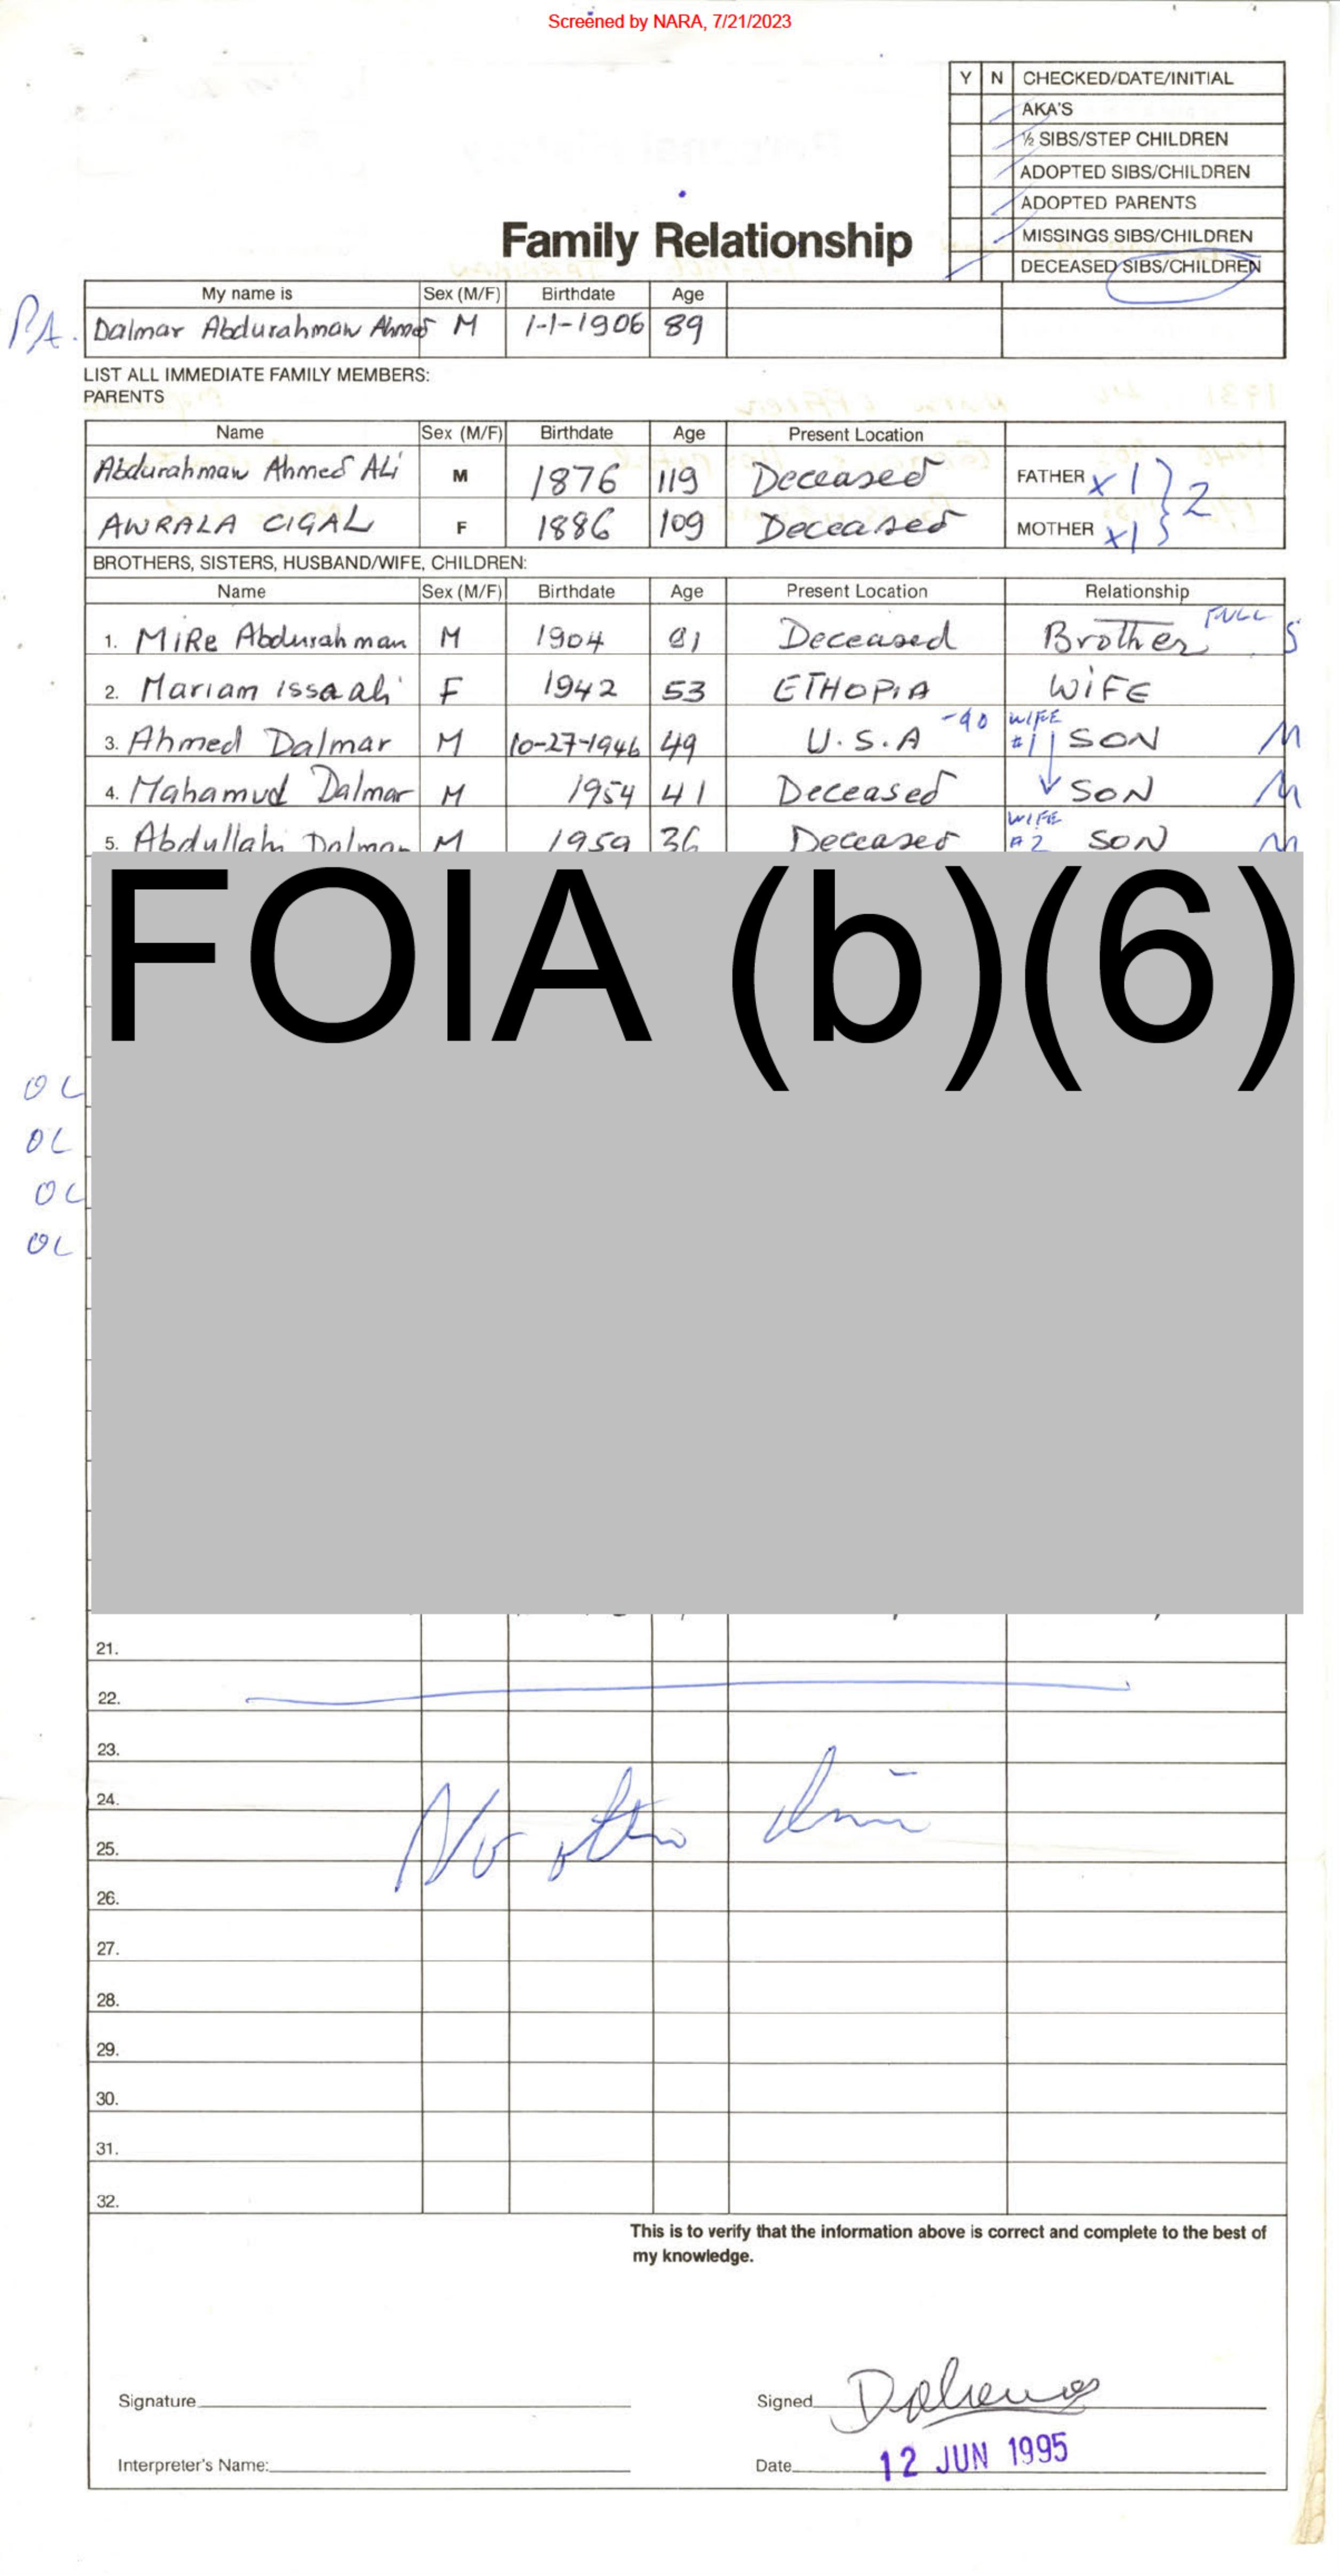 Screened by NARA, 7/21/2023
Y N CHECKED/DATE/INITIAL
AKA'S
½ SIBS/STEP CHILDREN
ADOPTED SIBS/CHILDREN
ADOPTED PARENTS
MISSINGS SIBS/CHILDREN
DECEASED SIBS/CHILDREN
Family Relationship
My name is Sex (M/F) Birthdate Age
PA. Dalmar Abdurahman Ahmed M 1-1-1906 89
LIST ALL IMMEDIATE FAMILY MEMBERS:
PARENTS
Name Sex (M/F) Birthdate Age Present Location
Abdurahman Ahmed ALi M 1876 119 Deceased FATHER x 1 } 2
AWRALA CIGAL F 1886 109 Deceased MOTHER x 1
BROTHERS, SISTERS, HUSBAND/WIFE, CHILDREN:
Name Sex (M/F) Birthdate Age Present Location Relationship
1. MiRe Abdurahman M 1904 91 Deceased Brother FULL S
2. Mariam Issa ali F 1942 53 ETHOPiA WiFE
3. Ahmed Dalmar M 10-27-1946 49 U.S.A -90 WIFE #1 SON M
4. Mahamud Dalmar M 1954 41 Deceased SON M
5. Abdullahi Dalmar M 1959 36 Deceased WIFE #2 SON M
FOIA (b)(6)
OL
OL
OL
OL
21.
22.
23.
24.
25.
No other
26.
27.
28.
29.
30.
31.
32.
This is to verify that the information above is correct and complete to the best of
my knowledge.
Signature Signed
Interpreter's Name: Date 12 JUN 1995